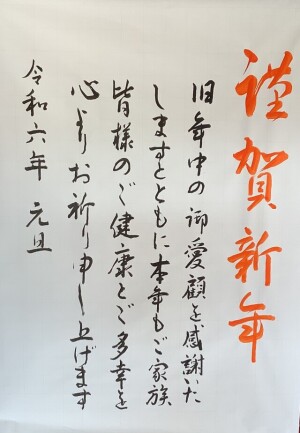 謹賀新年
旧年中の御愛顧を感謝いた
しますとともに本年もご家族
皆様のご健康とご多幸を
心よりお祈り申し上げます
令和六年 元旦